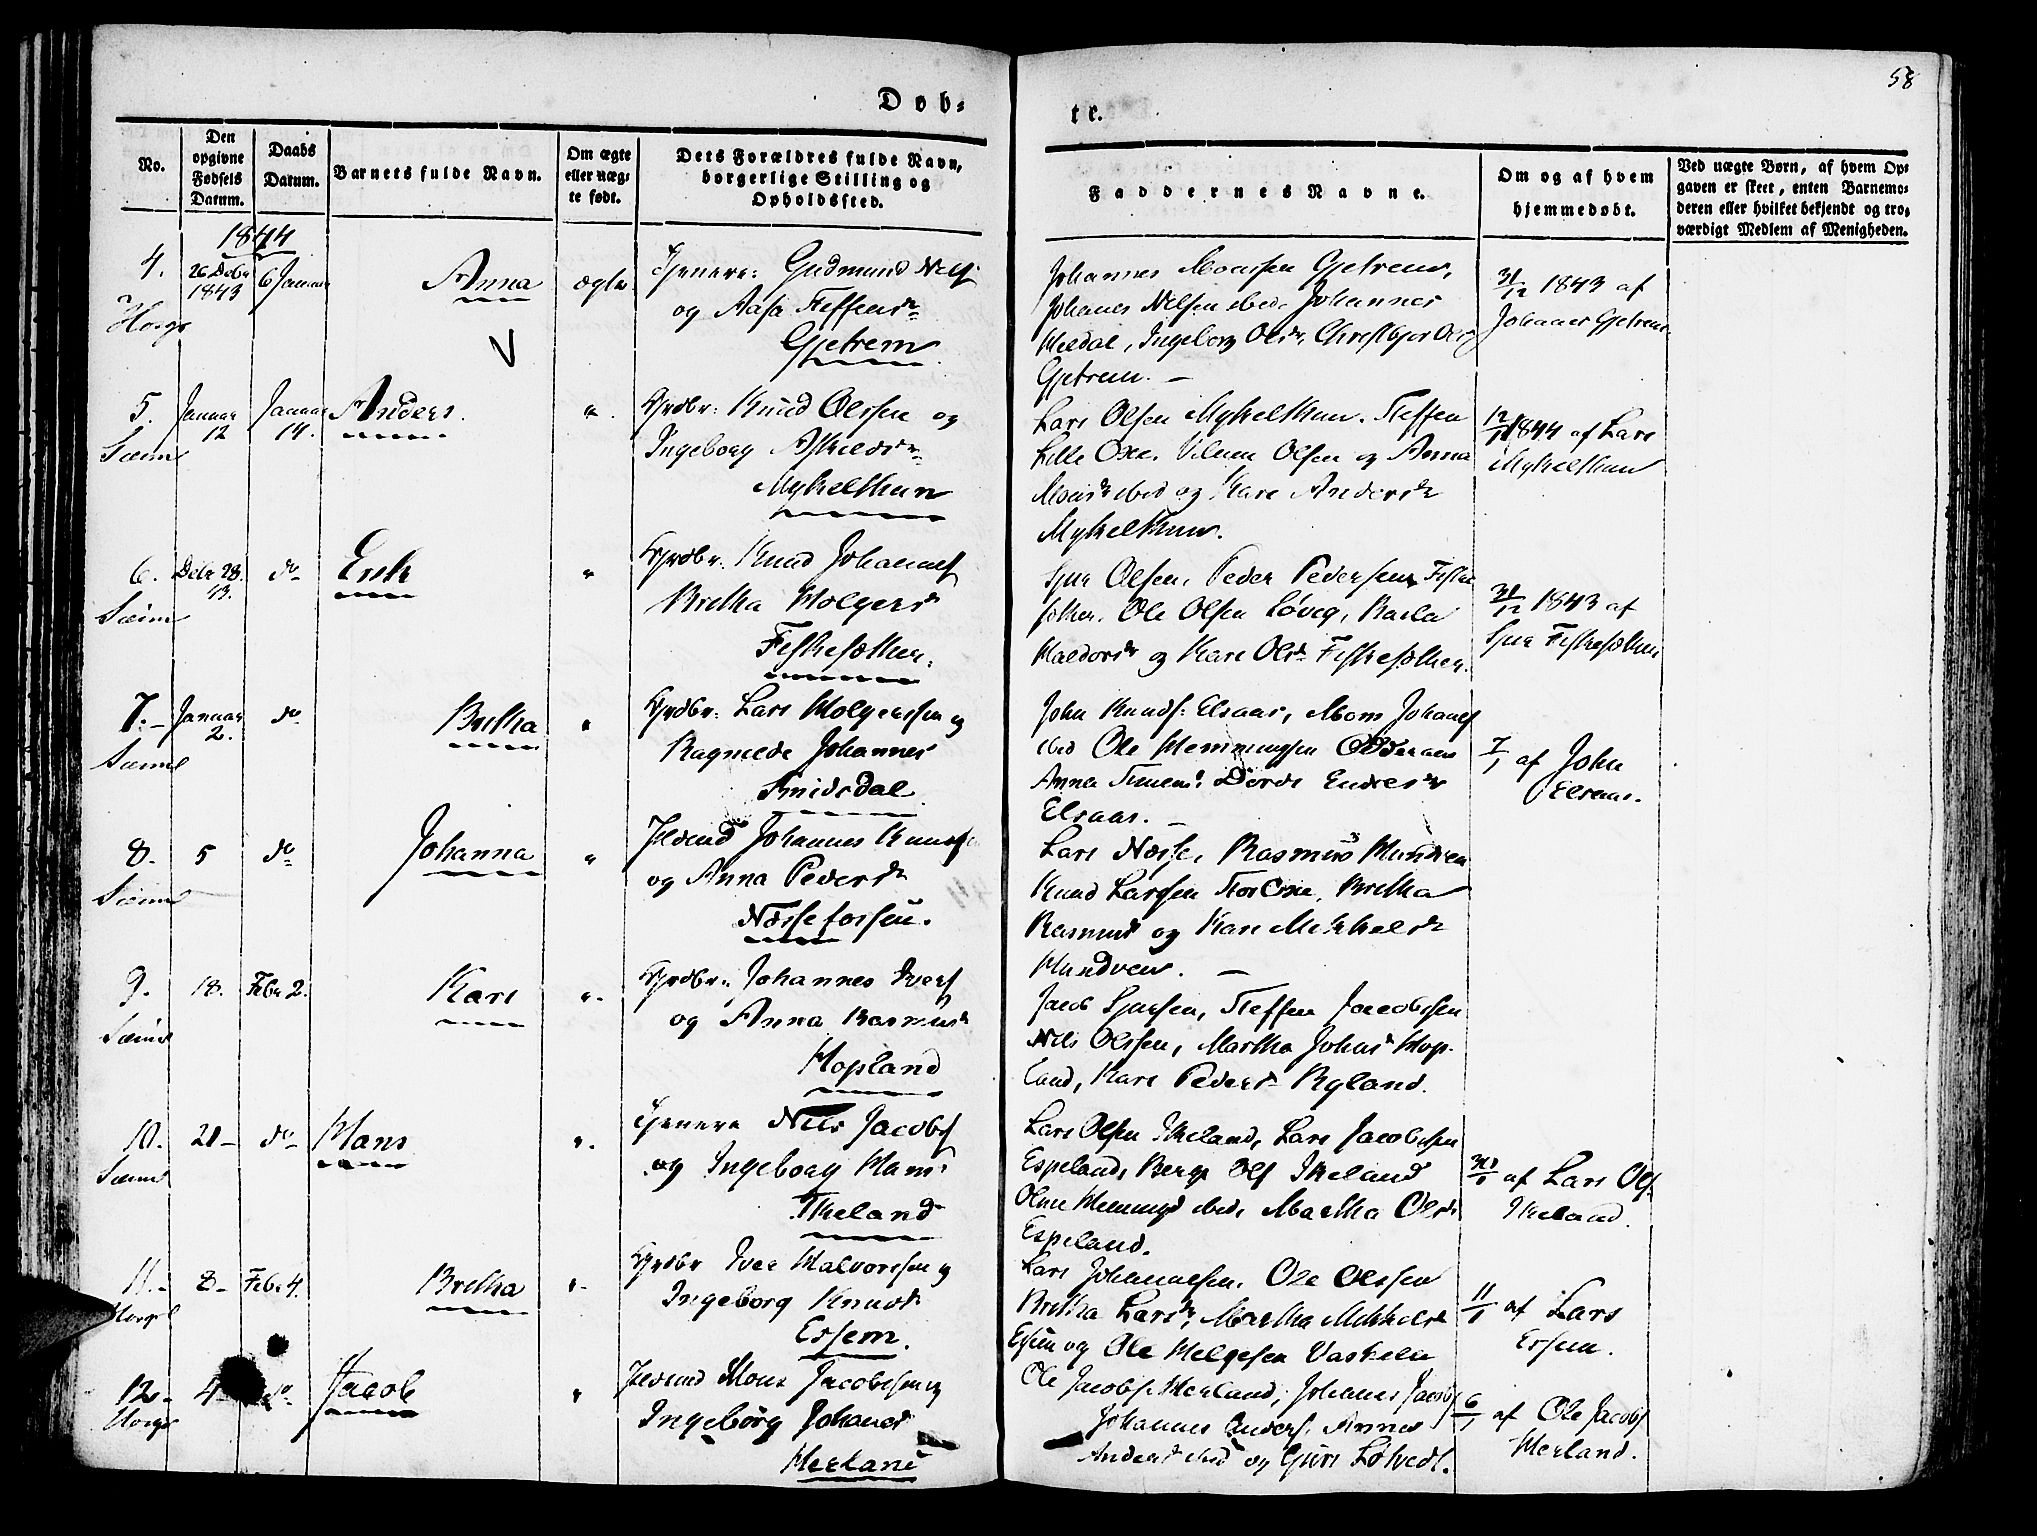 58
Døb-
te.
No.
Den opgivne Fødsels Datum.
Daabs Datum.
Barnets fulde Navn.
Om ægte eller uægte født.
Dets Forældres fulde Navn, borgerlige Stilling og Opholdssted.
Faddernes Navne.
Om og af hvem hjemmedøbt.
Ved uægte Børn, af hvem Opgaven er skeet, enten Barnemoderen eller hvilket bekjendt og troværdigt Medlem af Menigheden.
1844
4. 26 Decbr 1843 6 Januar Anna ægte
Gudmund Nels
og Aasa Steffensdr
Gjetrem
Johannes Monsen Gjetrem,
Johanes Nilsen ibid, Johannes
Meldal, Ingeborg Olsdr, Christbjor Ols
Gjetrem. —
31/12 1843 af
Johanes Gjetrem
5. Januar 12 Januar 14. Anders
Sæim
Grdbr: Knud Olssen og
Ingeborg Askeldsdr
Mykelthun
Lars Olsen Mykelthun. Steffen
Lille Oxe. Vilum Olsen og Anna
Monsdr ibid og Kari Andersdr
Mykelthun.
12/1 1844 af Lars
Mykelthun
6. Decbr 28. 43. do Erik
Sæim
Grdbr: Knud Johannes
Bretha Holgersdr
Fiskesæther.
Sjur Olsen, Peder Pedersen Fiske
sæther. Ole Olsen Løveg, Barla
Haldorsdr og Kari Olsdr Fiskesæther.
31/12 1843 af
Sjur Fiskesæther
7. Januar 2. do Bretha
Sæim
Grdbr: Lars Holgerssen og
Ragnilde Johannes
Smidsdal
John Knuds: Elsaas, Mons Johanes
ibid Ole Hemmingsen
Anna Dorde Endresdr
Elsaas. —
7/1 af John
Elsaas.
8. 5 do Johanna
Sæim
Johannes Knuds
og Anna Pedersdr
Næssefossen.
Lars Næsse, Rasmus Mundven
Knud Larssen Stor Oxe, Bretha
Rasmusdr og Kari Mikkelsdr
Mundven. —
9. 18. Febr 2. Kari
Sæim
Grdbr: Johannes Ivers
og Anna Rasmusdr
Hopland
Jacob Sjursen, Steffen Jacobssen
Nils Olssen, Martha Johansdr Hop-
land, Kari Pedersdr Ryland.
10. 21 do Hans
Sæim
Nils Jacobs
og Ingeborg Hans
Ikeland
Lars Olsen Ikeland, Lars Jacobssen
Espeland, Berge Ols Ikeland
ibid, Martha Olsdr
Espeland.
af Lars Ols
Ikeland.
11. 8 Febr 4. Bretha
Horge
Grdbr Iver Halvorssen og
Ingeborg Knudsdr
Essem.
Lars Johannesen, Ole Olssen
Bretha Larsdr, Martha Mikkelsdr
Essem og Ole Helgesen Vaskeln
11/1 af Lars
Essem.
12. 4 do Jacob
Horge
Mons Jacobssen og
Ingeborg Johanesdr
Herland
Ole Jacobs Herland, Johannes Jacobs
Johannes Anders, Anna
Andersdr ibid og Guri Løtvedt.
6/1 af Ole Jacobs
Herland.